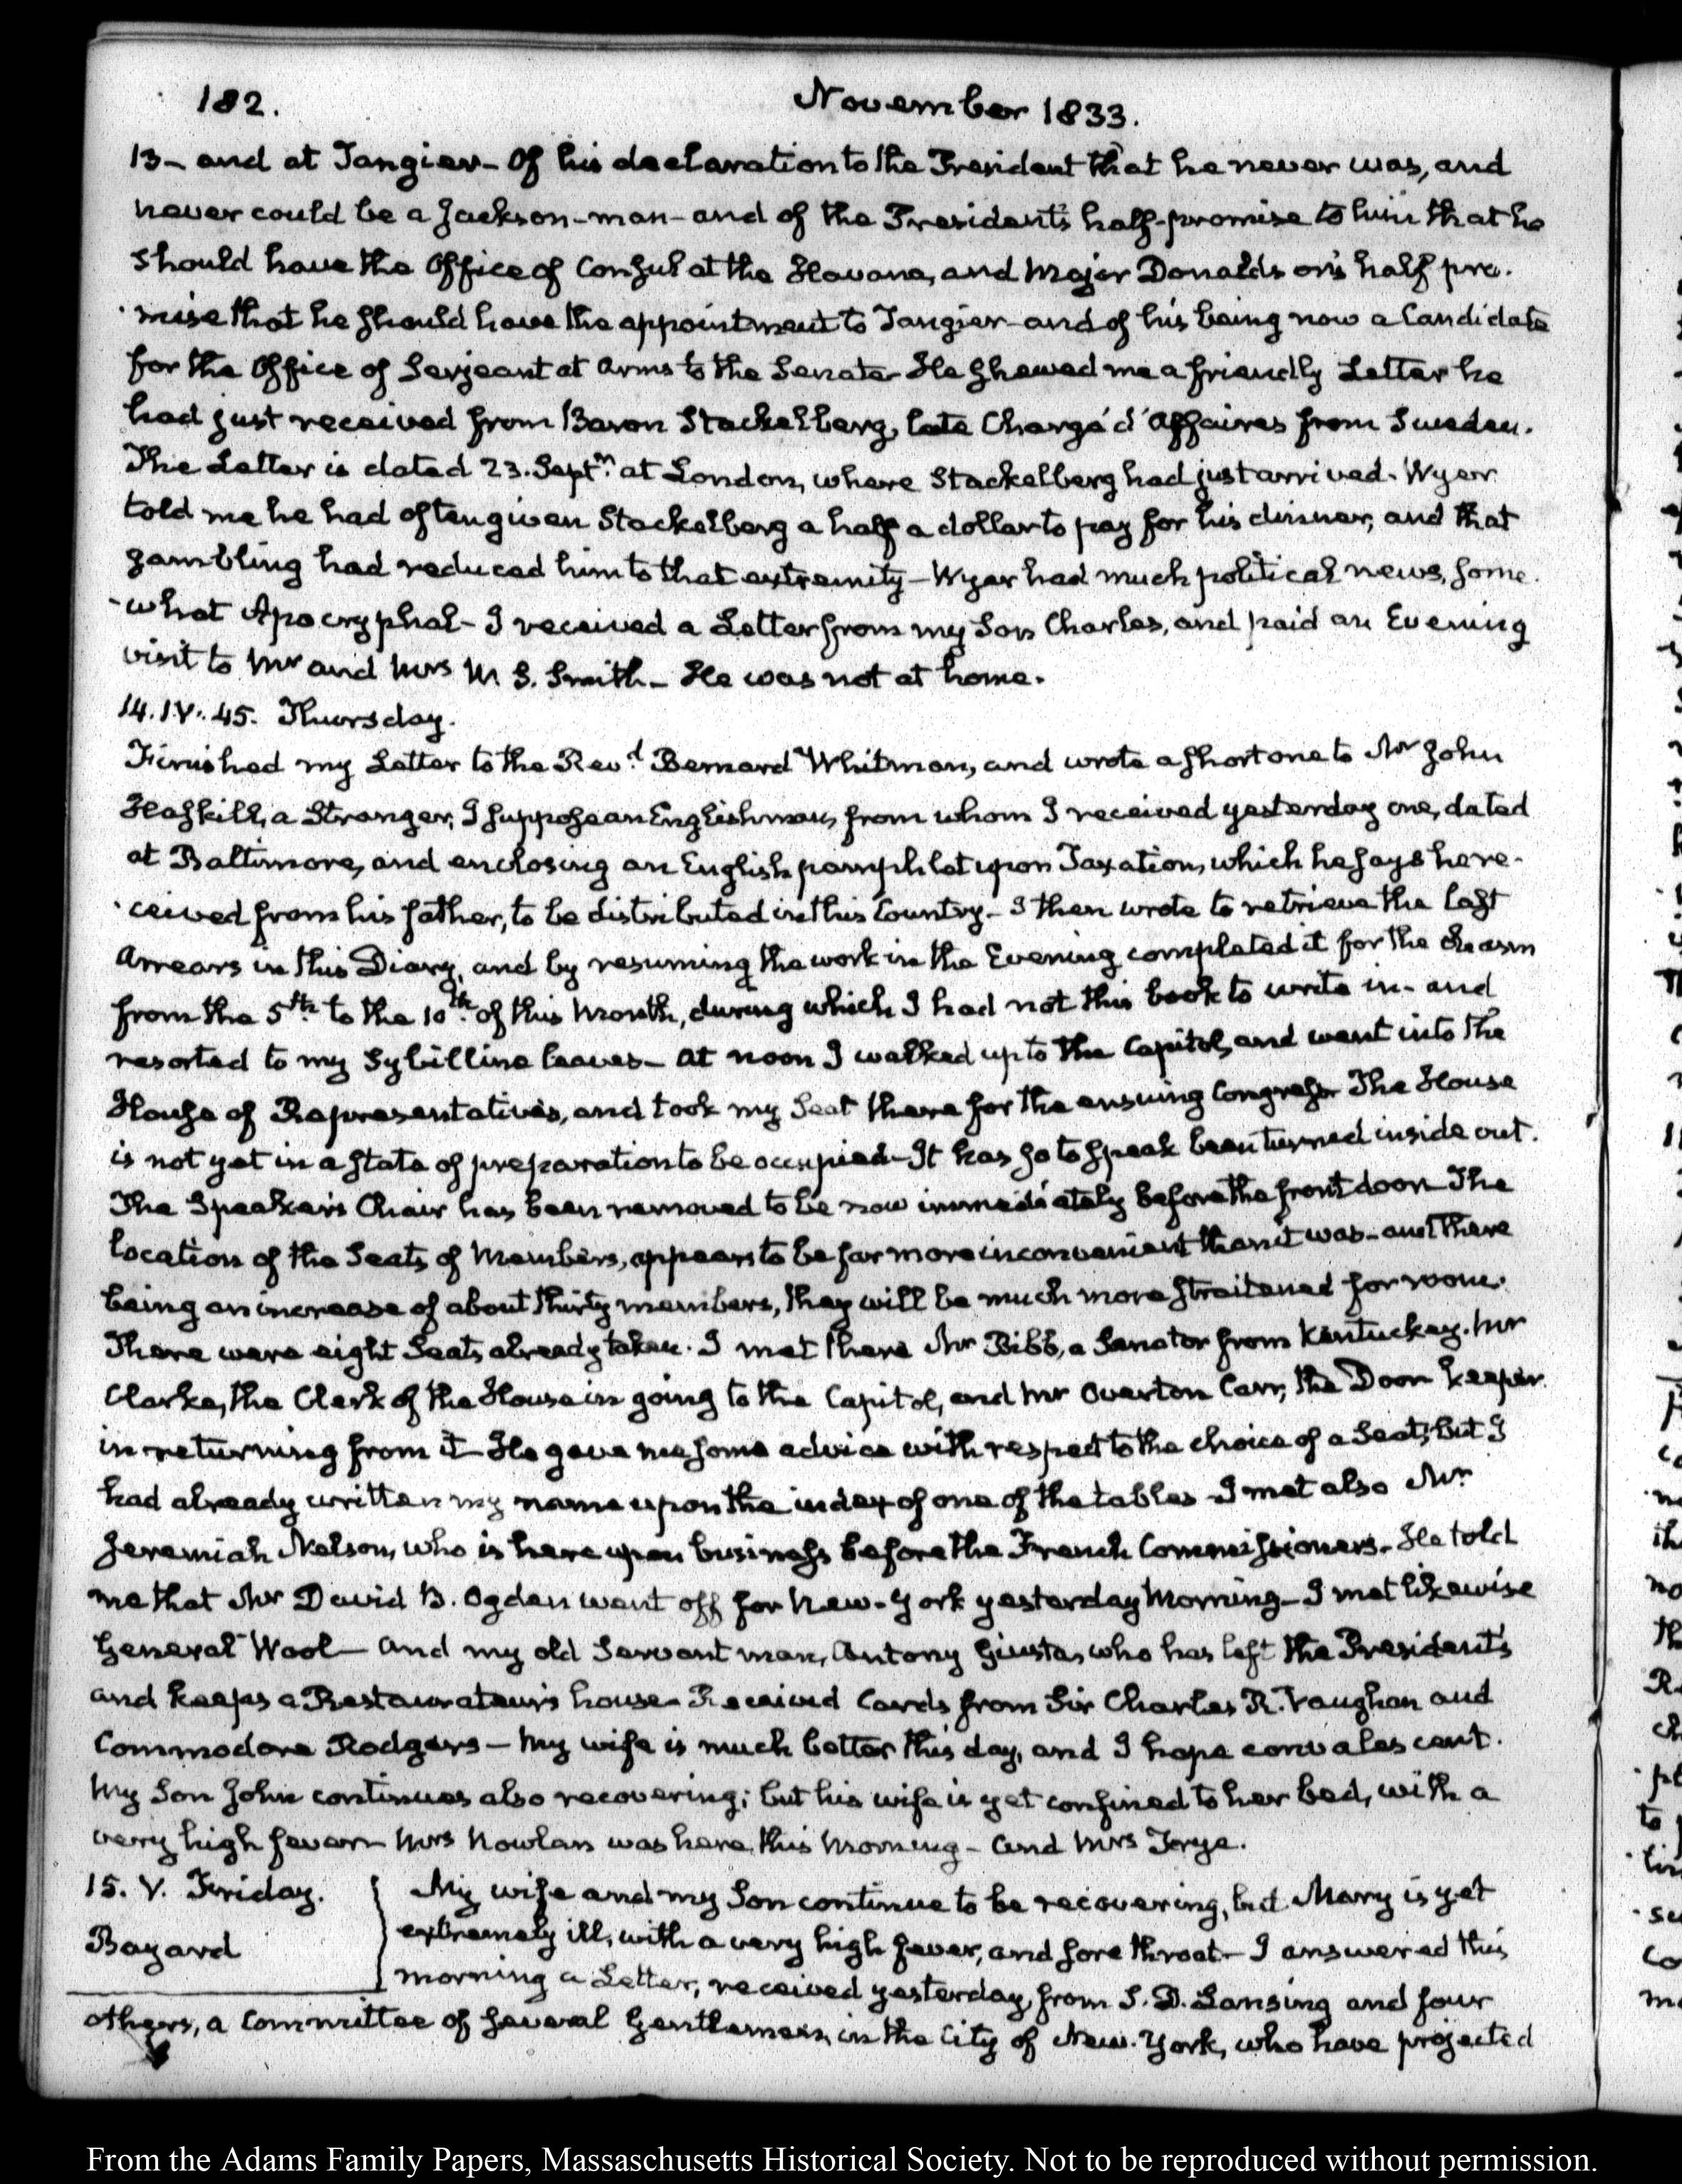 182.
November 1833.
13 – and at Tangier – Of his declaration to the President that he never was, and
never could be a Jackson-man – and of the President's half-promise to him that he
should have the Office of Consul at the Havana, and Major Donaldson's half pro-
-mise that he should have the appointment to Tangier – and of his being now a Candidate
for the Office of Serjeant at Arms to the Senate – He shewed me a friendly Letter he
had just received from Baron Stackelberg, late Chargé d'Affaires from Sweden.
The Letter is dated 23. Septr. at London, where Stackelberg had just arrived. Wyer
told me he had often given Stackelberg a half a dollar to pay for his dinner, and that
gambling had reduced him to that extremity – Wyer had much political news, some-
-what Apocryphal – I received a Letter from my Son Charles, and paid an Evening
visit to Mr and Mrs W. S. Smith – He was not at home.
14. IV:45. Thursday.
Finished my Letter to the Revd. Bernard Whitman, and wrote a short one to Mr John
Haskill, a Stranger, I suppose an Englishman, from whom I received yesterday one, dated
at Baltimore, and enclosing an English pamphlet upon Taxation, which he says he re-
-ceived from his father, to be distributed in this Country – I then wrote to retrieve the last
Arrears in this Diary, and by resuming the work in the Evening completed it for the chasm
from the 5th. to the 10th. of this Month, during which I had not this book to write in – and
resorted to my Sybilline leaves – At noon I walked up to the Capitol, and went into the
House of Representatives, and took my Seat there for the ensuing Congress – The House
is not yet in a state of preparation to be occupied – It has so to speak been turned inside out.
The Speaker's Chair has been removed to be now immediately before the front door – The
location of the Seats of Members, appears to be far more inconvenient than it was – and there
being an increase of about thirty members, they will be much more straitened for room.
There were eight Seats already taken. I met there Mr Bibb, a Senator from Kentuckey. Mr
Clarke, the Clerk of the House in going to the Capitol, and Mr Overton Carr, the Door keeper
in returning from it – He gave me some advice with respect to the choice of a Seat; but I
had already written my name upon the index of one of the tables – I met also Mr.
Jeremiah Nelson, who is here upon business before the French Commissioners – He told
me that Mr David B. Ogden went off for New-York yesterday Morning – I met likewise
General Wool – and my old Servant man, Antony Giusta, who has left the President's
and keeps a Restaurateur's house – Received Cards from Sir Charles R. Vaughan and
Commodore Rodgers – My wife is much better this day, and I hope convalescent.
My Son John continues also recovering; but his wife is yet confined to her bed, with a
very high fever – Mrs Nowlan was here this Morning – and Mrs Frye.
15. V. Friday.
Bayard
My wife and my Son continue to be recovering, but Mary is yet
extremely ill, with a very high fever, and sore throat – I answered this
morning a Letter, received yesterday, from S. D. Lansing and four
others, a Committee of several Gentlemen, in the City of New-York, who have projected
From the Adams Family Papers, Massachusetts Historical Society. Not to be reproduced without permission.